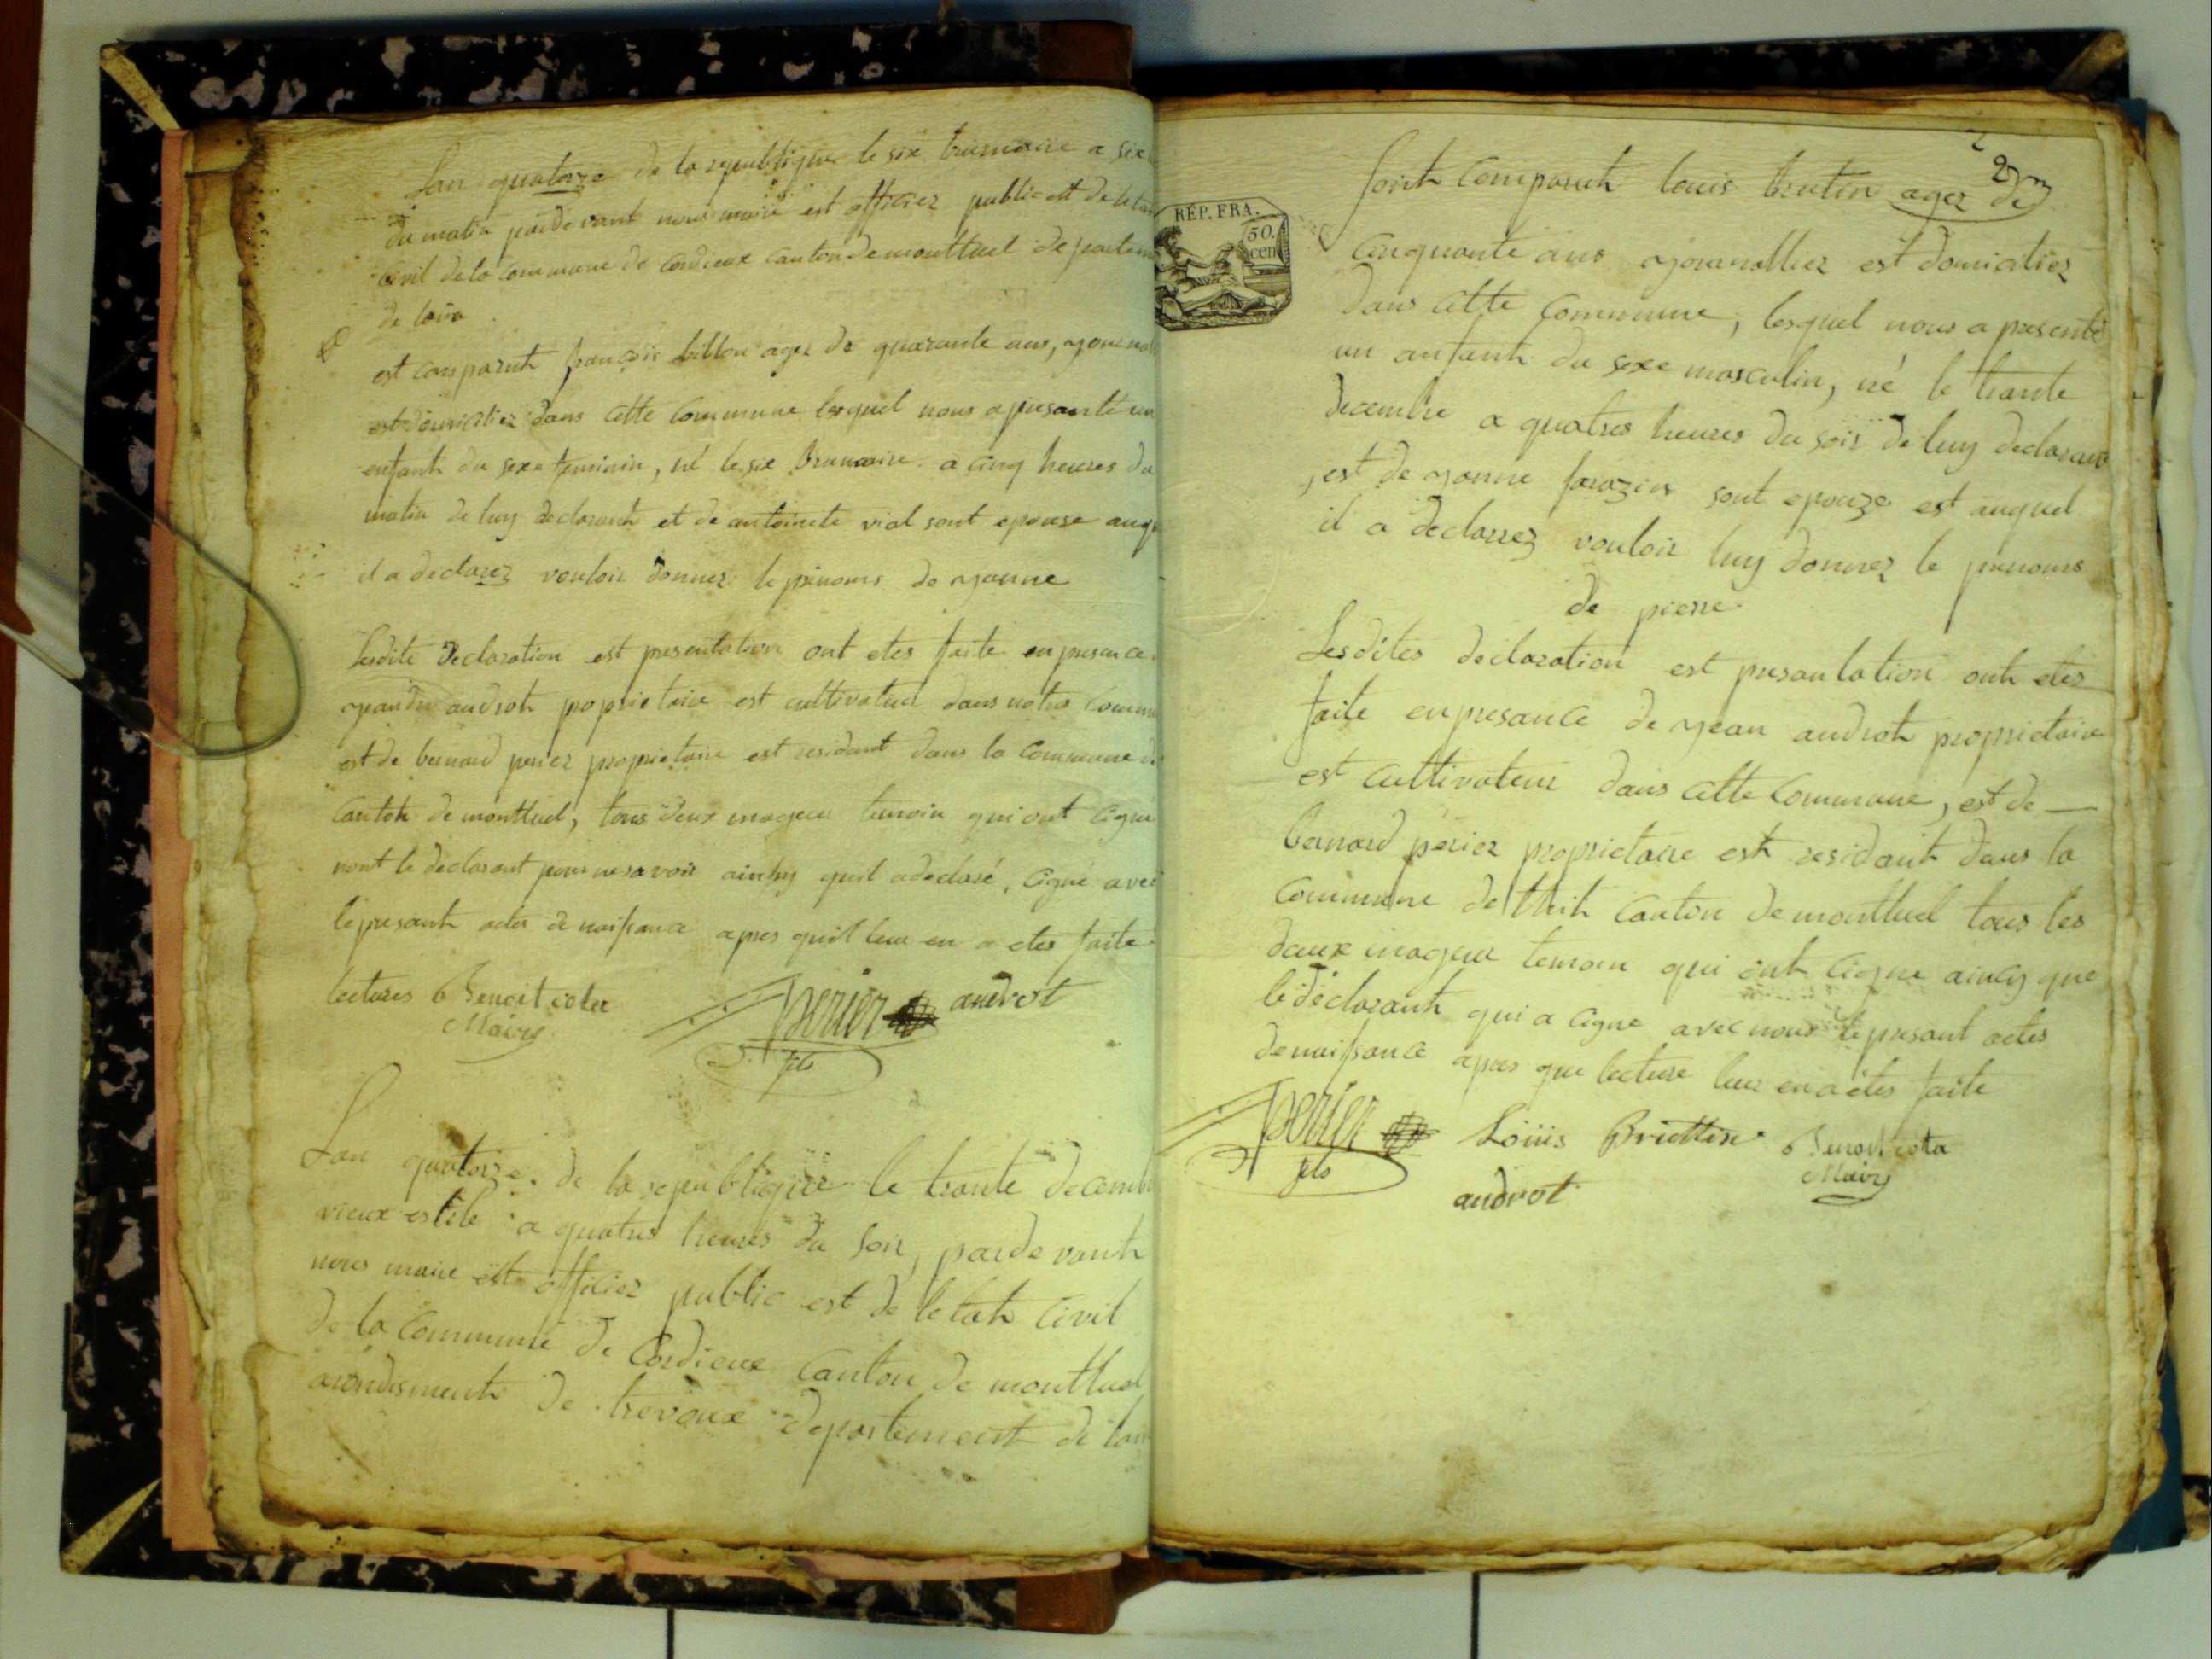 Lan quatorze de la republique le six brumaire a six
du matin pardevant nous maire est officiez public est de letat
civil de la commune de cordieux canton de montluel departem
de lain
est comparut françois billon agez de quarante ans, yournal
est domiciliez dans cette commune lesquel nous a presanté un
enfant du sexe feminin, né le six brumaire a cinq heures du
matin de luy declarant et de antoinete vial sont epouse auq
il a declarez vouloir donner le prenoms de yanne
Lesdite declaration est presentation ont etes faite en presence
androt proprietaire est cultivateur dans notre commu
est de bernard perier proprietaire est residant dans la commune de
canton de montluel, tous deux mageur temoin qui ont cigne
nont le declarant pour ne savoir ainsy quil a declaré, cigné avec
le presant actes de naissance apres quil leur en a etes faite
lectures Benoit cotta
Maire
perier androt
fils
Lan quatorze de la republiqur le trante decemb
vieux estile a quatres heures du soir, pardevant
nous maire est officiez public est de letat civil
de la commune de Cordieux canton de montluel
arondisment de trevoux departement de lain
2
soit comparut louis brutin agez de
cinquante ans yournallier est domiciliez
dans cette commune, lesquel nous a presenté
un anfant du sexe masculin, né le trante
decembre a quatres heures du soir de luy declarant
, est de yanne sont epouze est auquel
il a declarrez vouloir luy donnez le prenoms
de pierre
Lesdites declaration est presantation ont etes
faite en presance de yean androt proprietaire
est cultivateur dans cette commune, est de
bernard périer proprietaire est residant dans la
commune de canton de montluel tous les
deux mageur temoin qui ont cigne aincy que
le déclarant qui a cigne avec nous le presant actes
de naissance apres que lecture leur en a etes faite
RÉP. FRA.
50.
cen
perier Loüis Bruttin Benoit cotta
fils Maire
androt